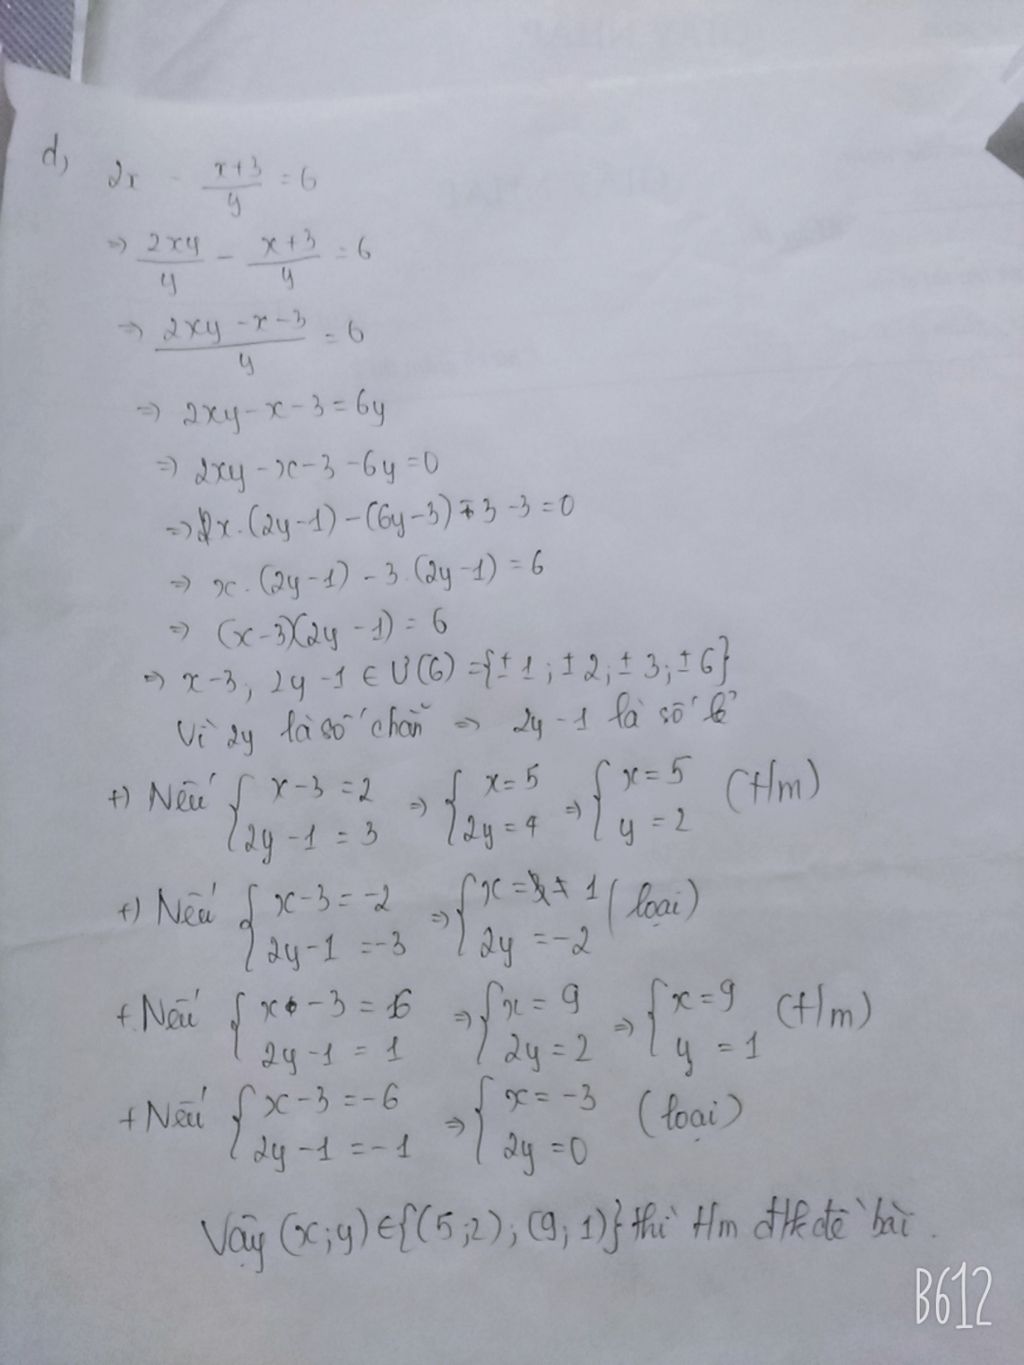 d, 2x - \frac{x+3}{y} = 6
=> \frac{2xy}{y} - \frac{x+3}{y} = 6
=> \frac{2xy - x - 3}{y} = 6
=> 2xy - x - 3 = 6y
=> 2xy - x - 3 - 6y = 0
=> x.(2y-1) - (6y-3) - 3 - 3 = 0
=> x.(2y-1) - 3.(2y-1) = 6
=> (x-3)(2y-1) = 6
=> x-3, 2y-1 ∈ Ư(6) = {±1; ±2; ±3; ±6}
Vì 2y là số chẵn => 2y-1 là số lẻ
+) Nếu { x-3 = 2 ; 2y-1 = 3 => { x = 5 ; 2y = 4 => { x = 5 ; y = 2 (t/m)
+) Nếu { x-3 = -2 ; 2y-1 = -3 => { x = 1 ; 2y = -2 (loại)
+ Nếu { x-3 = 6 ; 2y-1 = 1 => { x = 9 ; 2y = 2 => { x = 9 ; y = 1 (t/m)
+ Nếu { x-3 = -6 ; 2y-1 = -1 => { x = -3 ; 2y = 0 (loại)
Vậy (x;y) ∈ {(5;2); (9;1)} thì t/m đ/k đề bài.
B612